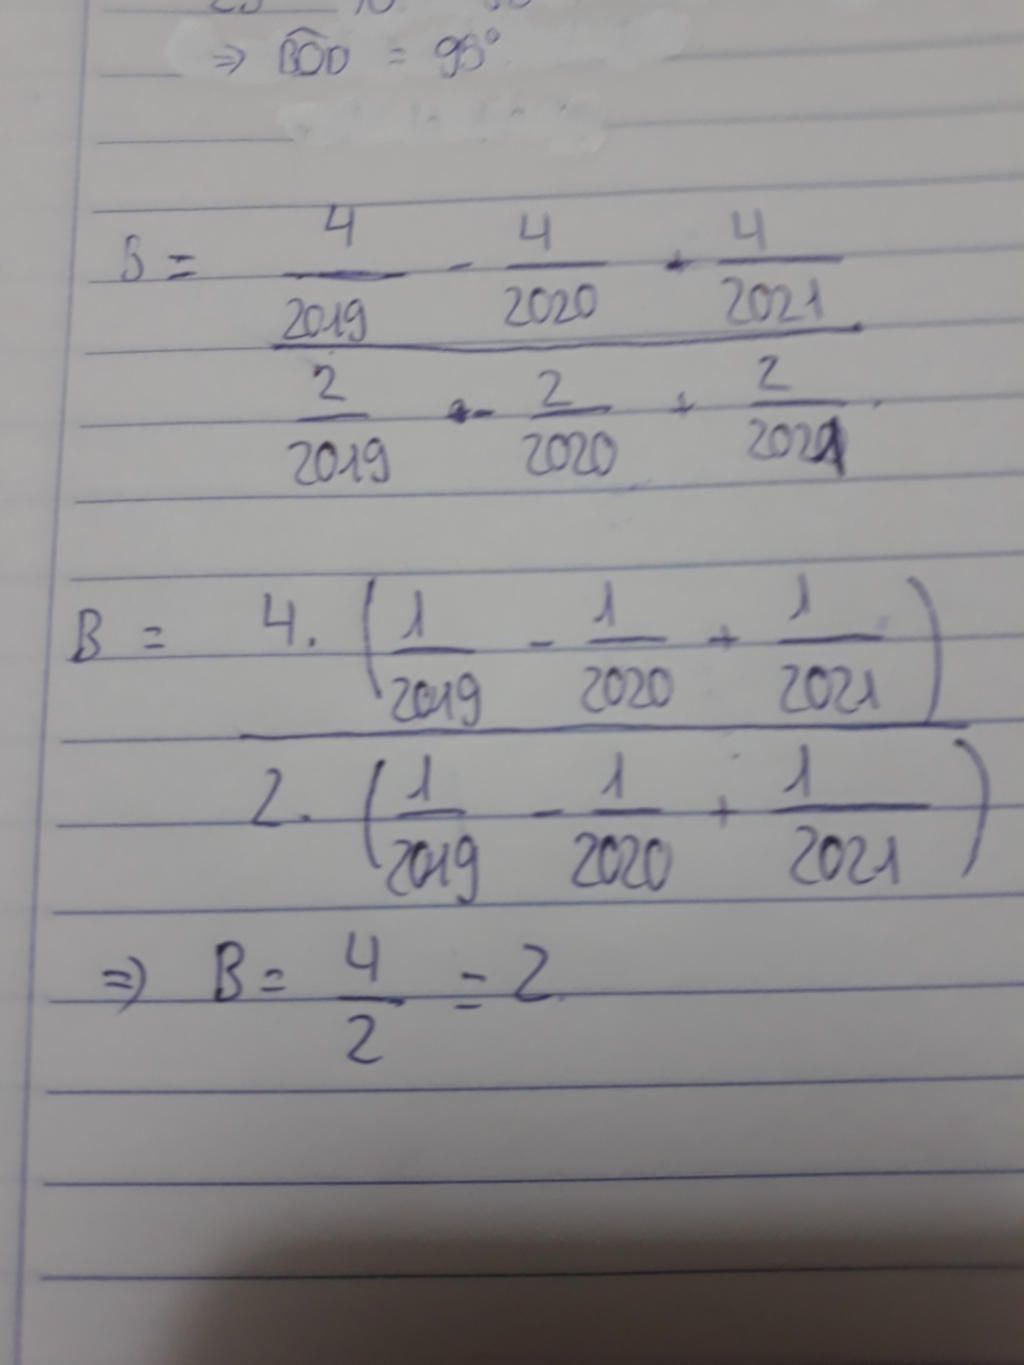 ⇒ BÔD = 95°
B = 4/2019 - 4/2020 + 4/2021
2/2019 - 2/2020 + 2/2021
B = 4. (1/2019 - 1/2020 + 1/2021)
2. (1/2019 - 1/2020 + 1/2021)
⇒ B = 4/2 = 2